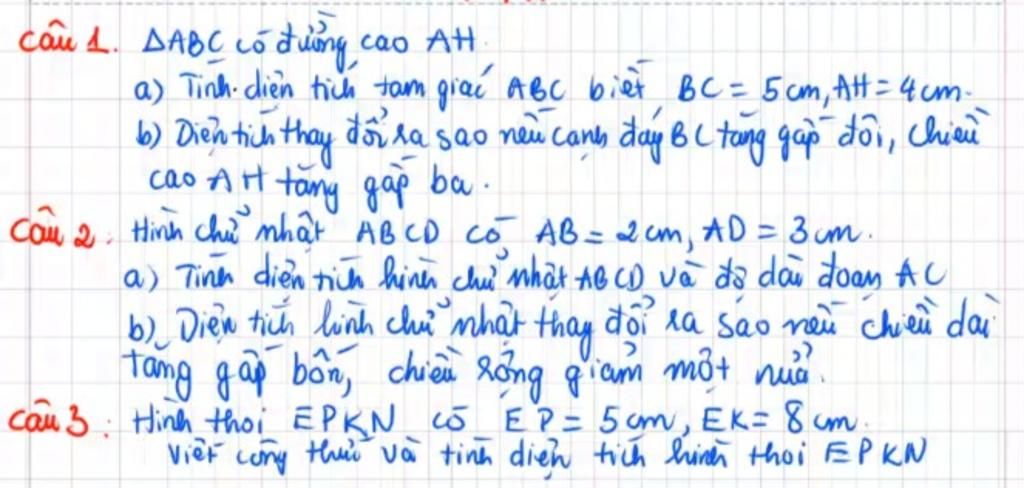 Câu 1. ΔABC có đường cao AH.
a) Tính diện tích tam giác ABC biết BC = 5cm, AH = 4cm.
b) Diện tích thay đổi ra sao nếu cạnh đáy BC tăng gấp đôi, chiều
cao AH tăng gấp ba.
Câu 2: Hình chữ nhật ABCD có AB = 2cm, AD = 3cm.
a) Tính diện tích hình chữ nhật ABCD và độ dài đoạn AC
b) Diện tích hình chữ nhật thay đổi ra sao nếu chiều dài
tăng gấp bốn, chiều rộng giảm một nửa.
Câu 3: Hình thoi EPKN có EP = 5cm, EK = 8cm.
Viết công thức và tính diện tích hình thoi EPKN